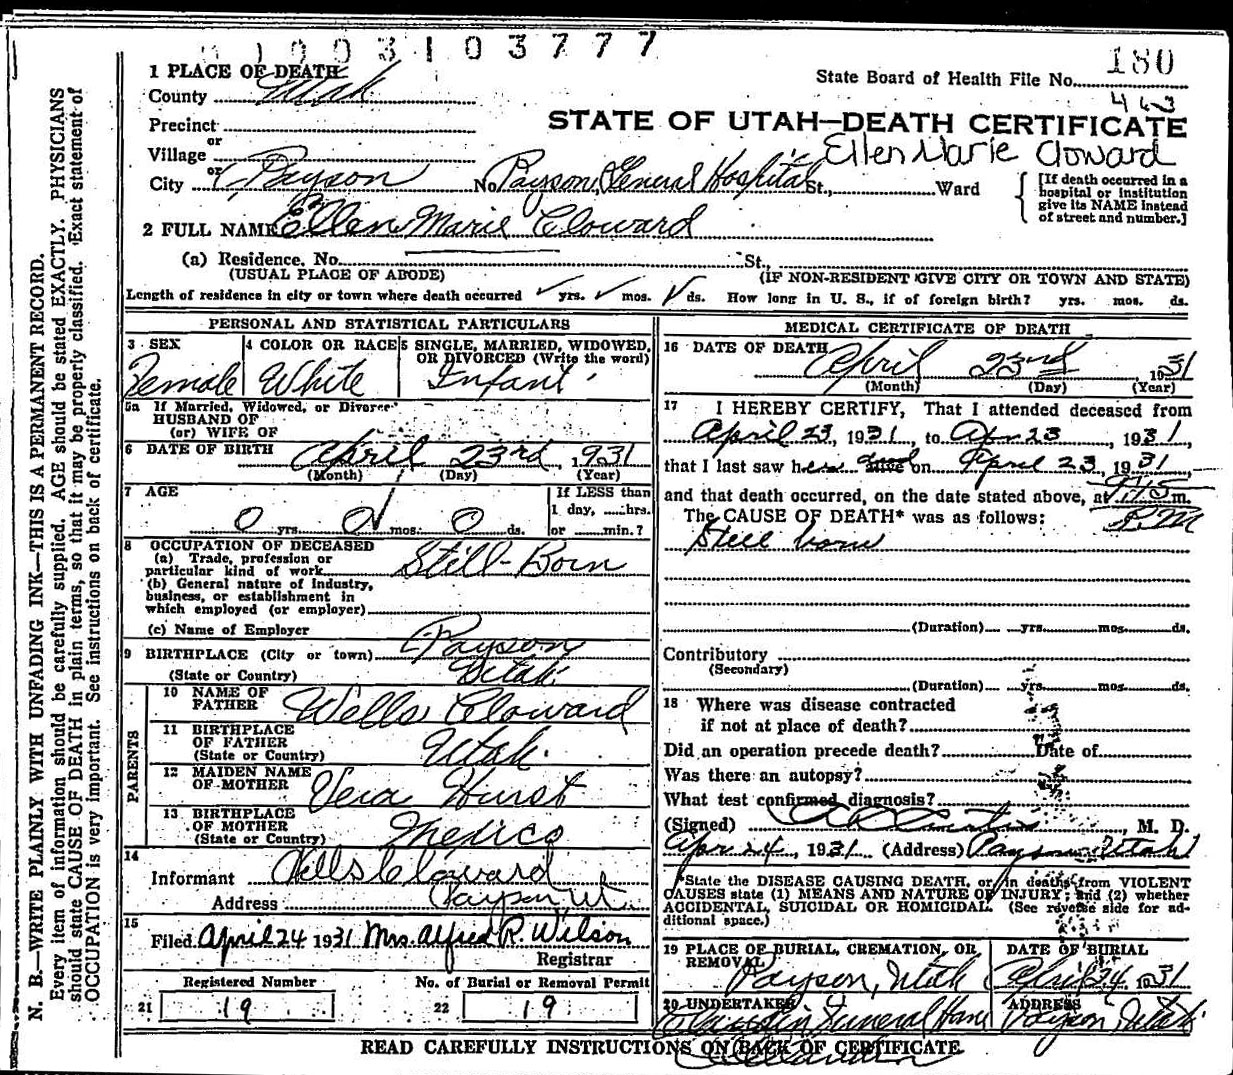 1003103777
180
1 PLACE OF DEATH State Board of Health File No.
County Utah
463
Precinct
STATE OF UTAH—DEATH CERTIFICATE
or
Village
Ellen Marie Cloward
or
City Payson No. Payson General Hospital St., Ward
[If death occurred in a hospital or institution give its NAME instead of street and number.]
2 FULL NAME Ellen Marie Cloward
(a) Residence. No. St.,
(USUAL PLACE OF ABODE) (IF NON-RESIDENT GIVE CITY OR TOWN AND STATE)
Length of residence in city or town where death occurred yrs. mos. ds. How long in U. S., if of foreign birth? yrs. mos. ds.
PERSONAL AND STATISTICAL PARTICULARS
3 SEX
Female
4 COLOR OR RACE
White
5 SINGLE, MARRIED, WIDOWED,
OR DIVORCED (Write the word)
Infant
5a If Married, Widowed, or Divorced
HUSBAND OF
(or) WIFE OF
6 DATE OF BIRTH April 23rd, 1931
(Month) (Day) (Year)
7 AGE
0 yrs. 0 mos. 0 ds.
If LESS than
1 day, hrs.
or min.?
8 OCCUPATION OF DECEASED
(a) Trade, profession or
particular kind of work Still-Born
(b) General nature of industry,
business, or establishment in
which employed (or employer)
(c) Name of Employer
9 BIRTHPLACE (City or town) Payson
(State or Country) Utah
PARENTS
10 NAME OF
FATHER Wells Cloward
11 BIRTHPLACE
OF FATHER
(State or Country) Utah.
12 MAIDEN NAME
OF MOTHER Vera Hurst
13 BIRTHPLACE
OF MOTHER
(State or Country) Mexico
14
Informant Wells Cloward
Address Payson Ut.
15
Filed April 24 1931 Mrs. Alfred R. Wilson
Registrar
Registered Number No. of Burial or Removal Permit
21 19 22 19
MEDICAL CERTIFICATE OF DEATH
16 DATE OF DEATH April 23rd 1931
(Month) (Day) (Year)
17 I HEREBY CERTIFY, That I attended deceased from
April 23, 1931, to Apr 23, 1931,
that I last saw her alive dead on April 23, 1931
and that death occurred, on the date stated above, at 9:45 m.
P.M
The CAUSE OF DEATH* was as follows:
Still born
(Duration) yrs. mos. ds.
Contributory
(Secondary)
(Duration) yrs. mos. ds.
18 Where was disease contracted
if not at place of death?
Did an operation precede death? Date of
Was there an autopsy?
What test confirmed diagnosis?
(Signed) , M. D.
Apr 24, 1931 (Address) Payson Utah
*State the DISEASE CAUSING DEATH, or in deaths from VIOLENT
CAUSES state (1) MEANS AND NATURE OF INJURY; and (2) whether
ACCIDENTAL, SUICIDAL OR HOMICIDAL. (See reverse side for ad-
ditional space.)
19 PLACE OF BURIAL, CREMATION, OR
REMOVAL Payson, Utah
DATE OF BURIAL
April 24 1931
20 UNDERTAKER
Funeral Home
ADDRESS
Payson, Utah
READ CAREFULLY INSTRUCTIONS ON BACK OF CERTIFICATE
N. B.—WRITE PLAINLY WITH UNFADING INK—THIS IS A PERMANENT RECORD.
Every item of information should be carefully supplied. AGE should be stated EXACTLY. PHYSICIANS
should state CAUSE OF DEATH in plain terms, so that it may be properly classified. Exact statement of
OCCUPATION is very important. See instructions on back of certificate.